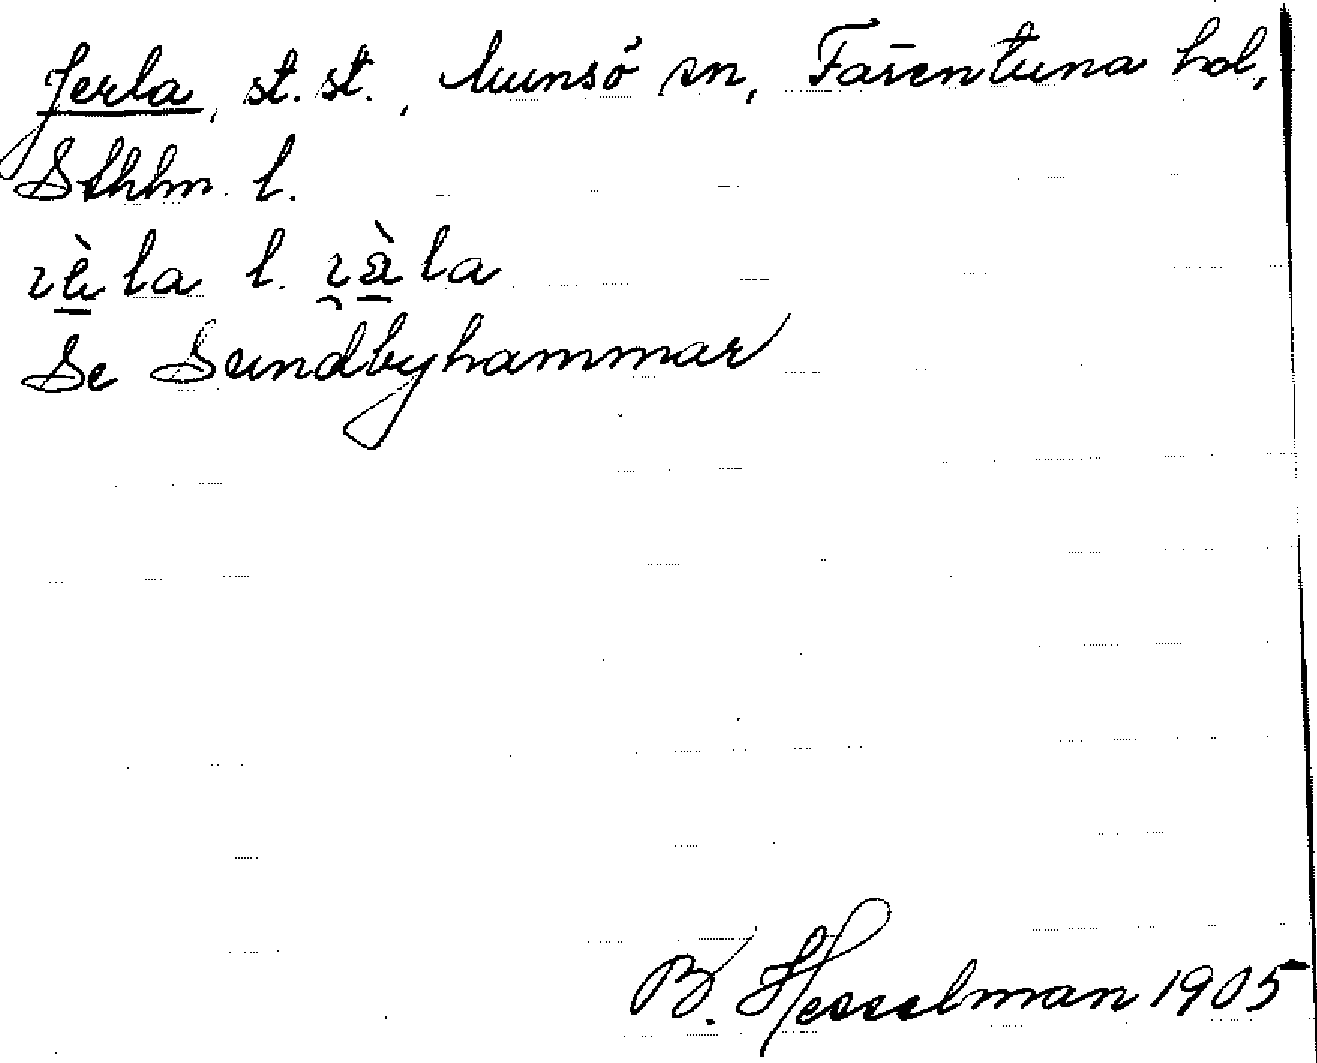 Jerla, st. st., Munsö sn, Färentuna hd,
Sthlm l.
l.
Se Sundbyhammar
B. Hesselman 1905